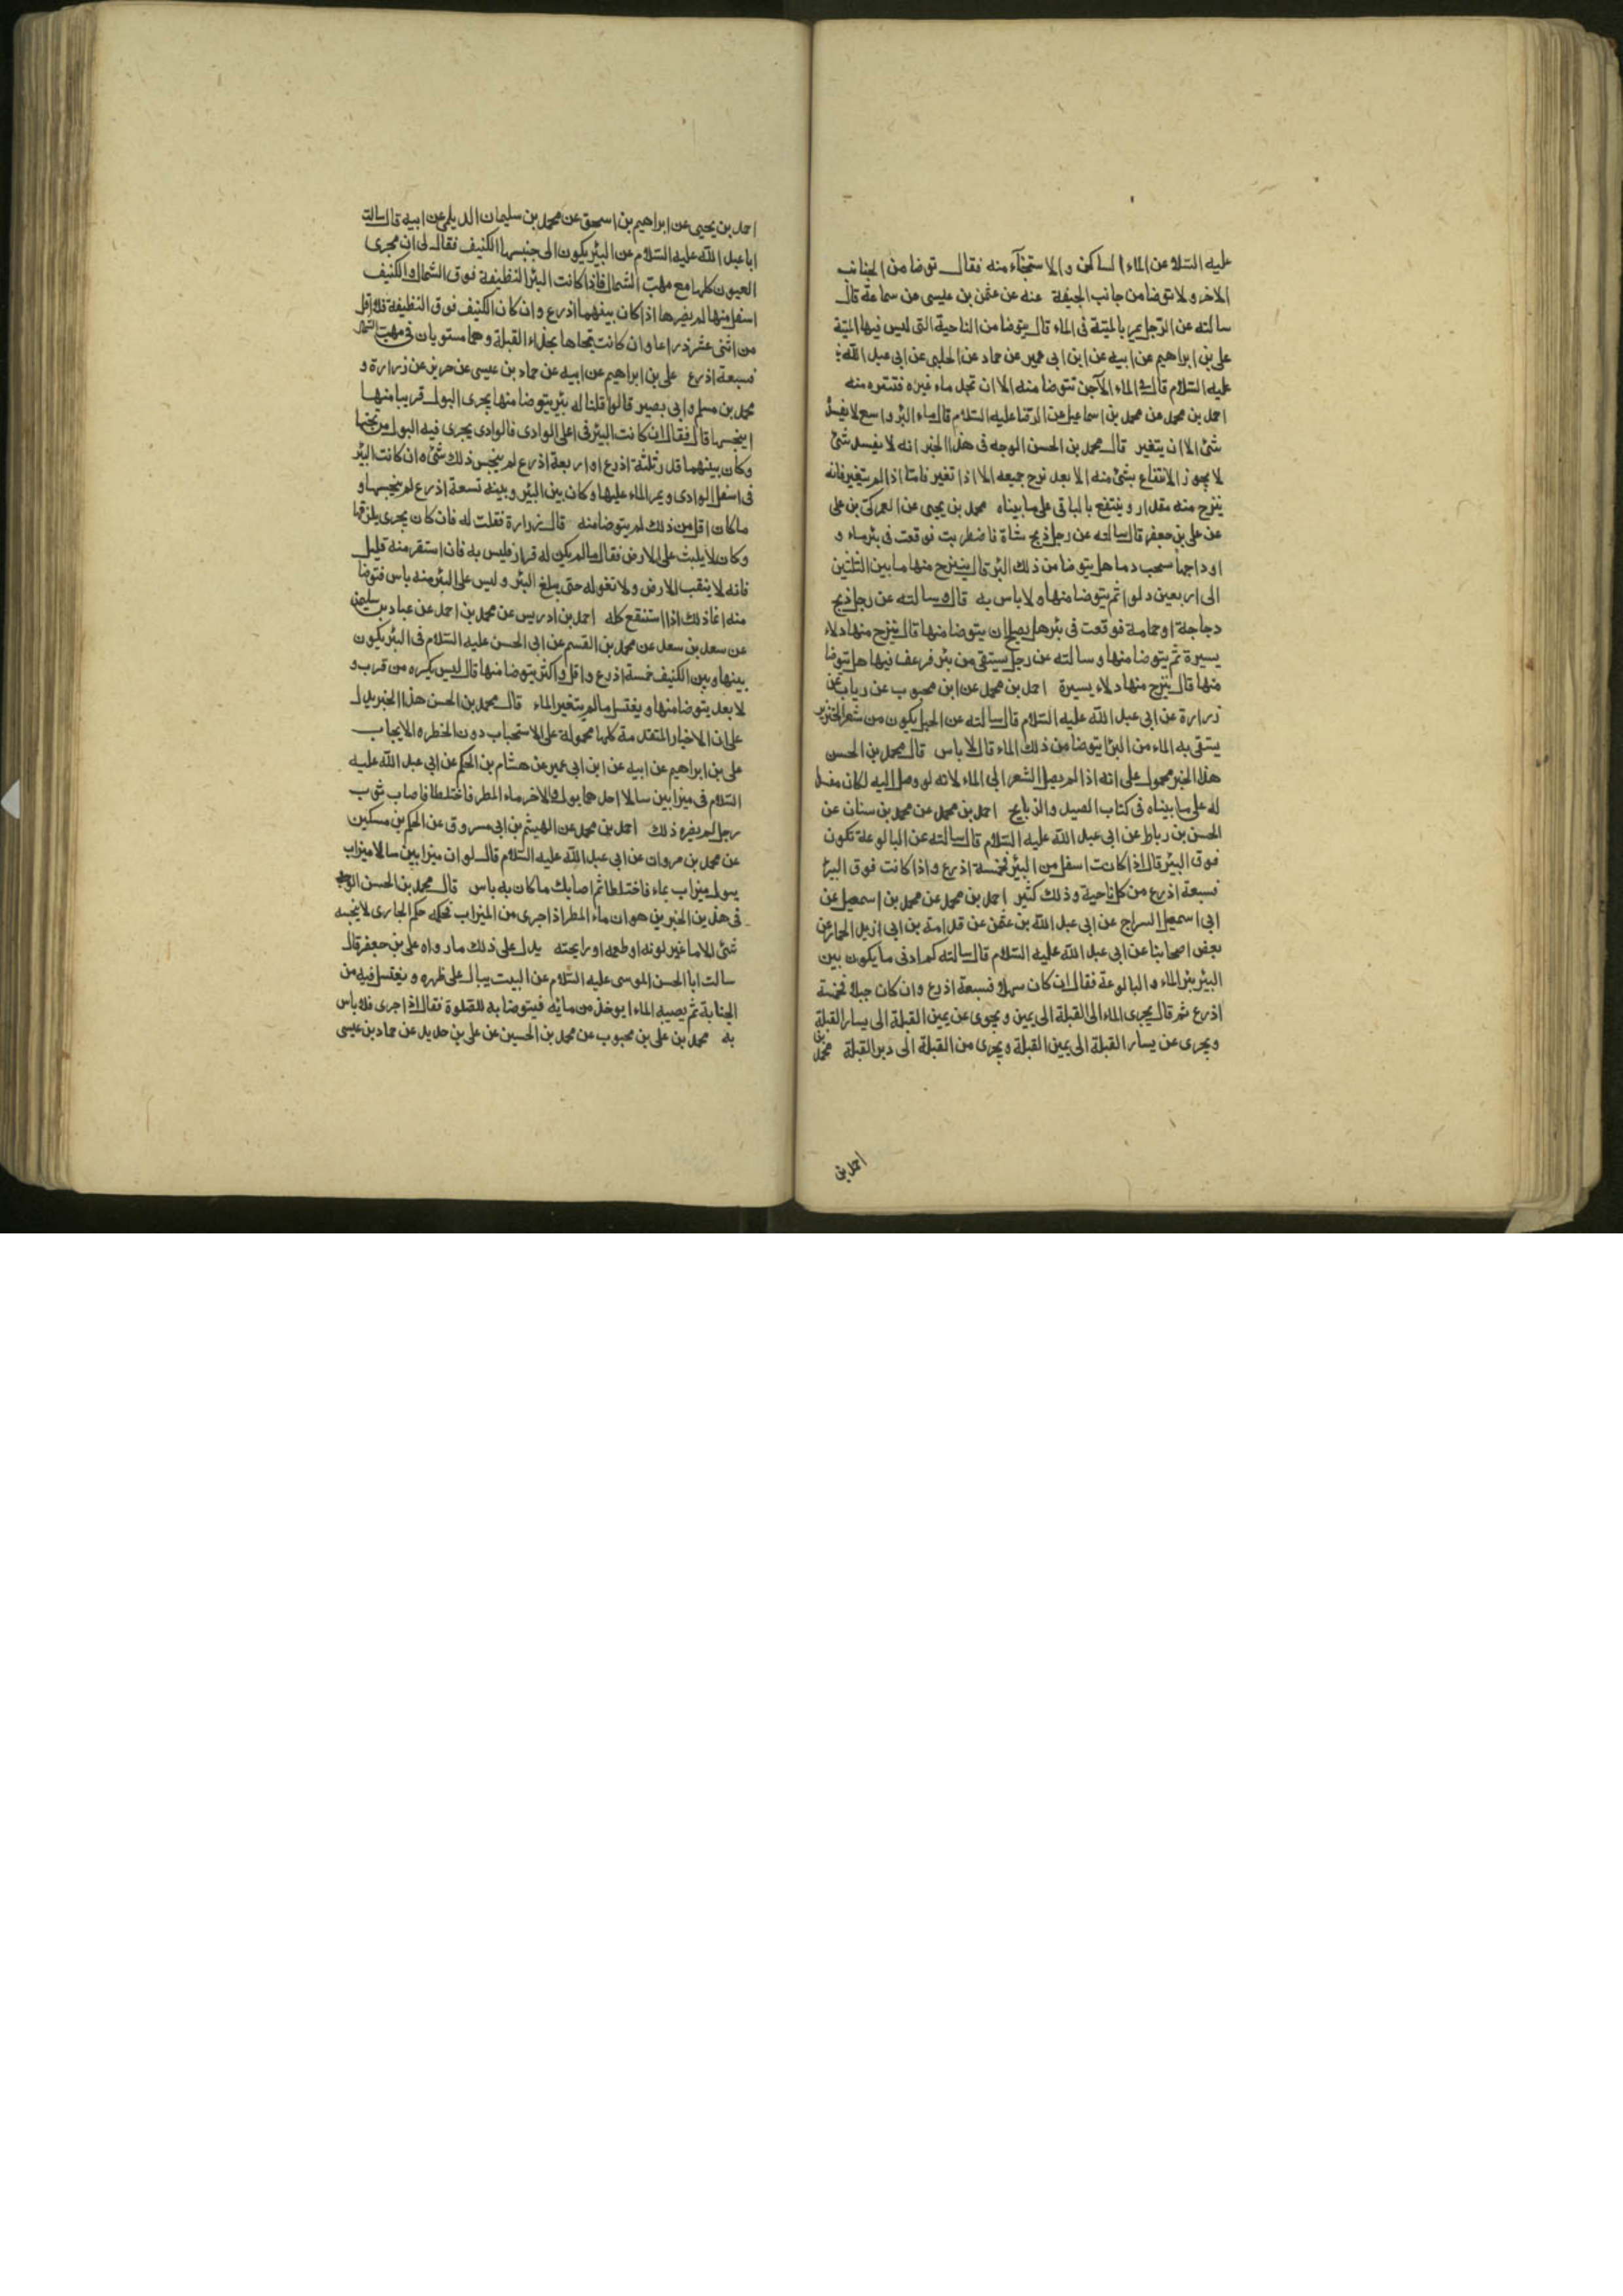 عليه السلام عن الماء الساكن والاستنجاء منه فقال توضا من الجانب
الاخر ولا توضا من جانب الجيفة عنه عن عثمن بن عيسى عن سماعة قال
سالته عن الرجل يمر بالميتة فى الماء قال يتوضا من الناحية التى ليس فيها الميتة
على بن ابراهيم عن ابيه عن ابن ابى عمير عن حماد عن الحلبى عن ابى عبد الله
عليه السلام قال فى الماء الآجن تتوضا منه الا ان تجد ماء غيره فتنزه منه
احمد بن محمد عن محمد بن اسماعيل عن الرضا عليه السلام قال ماء البئر واسع لا يفسد
شئ الا ان يتغير قال محمد بن الحسن الوجه فى هذا الخبر انه لا يفسد شئ
لا يجوز الانتفاع بشئ منه الا بعد نزح جميعه الا اذا تغير فامّا اذا لم يتغير فانه
ينزح منه مقدار وينتفع بالباقى على ما بيناه محمد بن يحيى عن العمركى بن على
عن على بن جعفر قال سالته عن رجل ذبح شاة فاضطربت فوقعت فى بئر ماء و
اوداجها تشخب دما هل يتوضا من ذلك البئر قال ينزح منها ما بين الثلثين
الى اربعين دلوا ثم يتوضا منها ولا باس به قال وسالته عن رجل ذبح
دجاجة او حمامة فوقعت فى بئر هل يصلح ان يتوضا منها قال ينزح منها دلاء
يسيرة ثم يتوضا منها وسالته عن رجل يستقى من بئر فرعف فيها هل يتوضا
منها قال ينزح منها دلاء يسيرة احمد بن محمد عن ابن محبوب عن رياب عن
زرارة عن ابى عبد الله عليه السلام قال سالته عن الحبل يكون من شعر الخنزير
يستقى به الماء من البئر ايتوضا من ذلك الماء قال لا باس قال محمد بن الحسن
هذا الخبر محمول على انه اذا لم يصل الشعر الى الماء لانه لو وصل اليه لكان مفسدا
له على ما بيناه فى كتاب الصيد والذبايح احمد بن محمد عن محمد بن سنان عن
الحسن بن رباط عن ابى عبد الله عليه السلام قال سالته عن البالوعة تكون
فوق البئر قال اذا كانت اسفل من البئر فخمسة اذرع واذا كانت فوق البئر
فسبعة اذرع من كل ناحية وذلك كثير احمد بن محمد عن محمد بن اسمعيل عن
ابى اسمعيل السراج عن ابى عبد الله بن عثمن عن قدامة بن ابى ازيد الحمار عن
بعض اصحابنا عن ابى عبد الله عليه السلام قال سالته كم ادنى ما يكون بين
البئر بئر الماء والبالوعة فقال ان كان سهلا فسبعة اذرع وان كان جبلا فخمسة
اذرع ثم قال يجرى الماء الى القبلة الى يمين ويجرى عن يمين القبلة الى يسار القبلة
ويجرى عن يسار القبلة الى يمين القبلة ويجرى من القبلة الى دبر القبلة محمد بن
احمد بن
احمد بن يحيى عن ابراهيم بن اسحق عن محمد بن سليمان الديلمى عن ابيه قال سالت
ابا عبد الله عليه السلام عن البئر يكون الى جنبها الكنيف فقال لى ان مجرى
العيون كلها مع مهبّ الشمال فاذا كانت البئر النظيفة فوق الشمال والكنيف
اسفل منها لم يضرها اذا كان بينهما اذرع وان كان الكنيف فوق النظيفة فلا اقل
من اثنى عشر ذراعا وان كانت تجاها بحذاء القبلة وهما مستويان فى مهب الشمال
فسبعة اذرع على بن ابراهيم عن ابيه عن حماد بن عيسى عن حريز عن زرارة و
محمد بن مسلم وابى بصير قالوا قلنا له بئر يتوضا منها يجرى البول قريبا منها
اينجسها قال فقال ان كانت البئر فى اعلى الوادى فالوادى يجرى فيه البول من تحتها
وكان بينهما قدر ثلثة اذرع او اربعة اذرع لم ينجس ذلك شئ وان كانت البئر
فى اسفل الوادى ويمر الماء عليها وكان بين البئر وبينه تسعة اذرع لم ينجسها و
ما كان اقل من ذلك لم يتوضا منه قال زرارة فقلت له فان كان يجرى يلزقها
وكان لا يلبث على الارض فقال ما لم يكن له قرار فليس به فان استقر منه قليل
فانه لا ينقب الارض ولا تغوله حتى يبلغ البئر وليس على البئر منه باس فتوضا
منه انما ذلك اذا استنقع كله احمد بن ادريس عن محمد بن احمد عن عباد بن سليمن
عن سعد بن سعد عن محمد بن القسم عن ابى الحسن عليه السلام فى البئر يكون
بينها وبين الكنيف خمسة اذرع واقل واكثر يتوضا منها قال ليس يكره من قرب و
لا بعد يتوضا منها ويغتسل ما لم يتغير الماء قال محمد بن الحسن هذا الخبر يدل
على ان الاخبار المتقدمة كلها محمولة على الاستحباب دون الخطره الايجاب
على بن ابراهيم عن ابيه عن ابن ابى عمير عن هشام بن الحكم عن ابى عبد الله عليه
السلام فى ميزابين سالا احدهما بول والاخر ماء المطر فاختلطا فاصاب ثوب
رجل لم يضره ذلك احمد بن محمد عن الهيثم بن ابى مسروق عن الحكم بن مسكين
عن محمد بن مروان عن ابى عبد الله عليه السلام قال لو ان ميزابين سالا ميزاب
ببول وميزاب بماء فاختلطا ثم اصابك ما كان به باس قال محمد بن الحسن الوجه
فى هذين الخبرين هو ان ماء المطر اذا جرى من الميزاب فحكمه حكم الجارى لا ينجسه
شئ الا ما غير لونه او طعمه او رايحته يدل على ذلك ما رواه على بن جعفر قال
سالت ابا الحسن الموسى عليه السلام عن البيت يبال على ظهره ويغتسل فيه من
الجنابة ثم يصيبه الماء ايوخذ من مائه فيتوضا به للصلوة فقال اذا جرى فلا باس
به محمد بن على بن محبوب عن محمد بن الحسين عن على بن حديد عن حماد بن عيسى